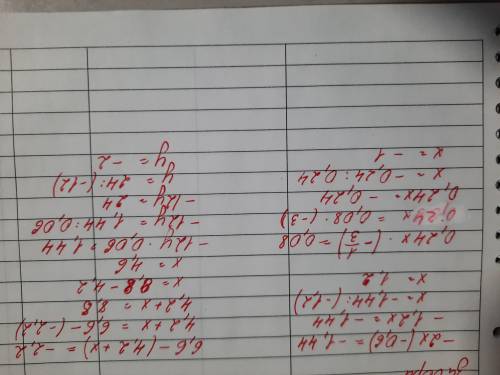 -2x·(-0,6) = -1,44
-1,2x = -1,44
x = -1,44:(-1,2)
x = 1,2
0,24x · (-1/3) = 0,08
0,24x = 0,08 · (-3)
0,24x = -0,24
x = -0,24:0,24
x = -1
6,6-(4,2+x) = -2,2
4,2+x = 6,6-(-2,2)
4,2+x = 8,8
x = 8,8-4,2
x = 4,6
-12y · 0,06 = 1,44
-12y = 1,44:0,06
-12y = 24
y = 24:(-12)
y = -2